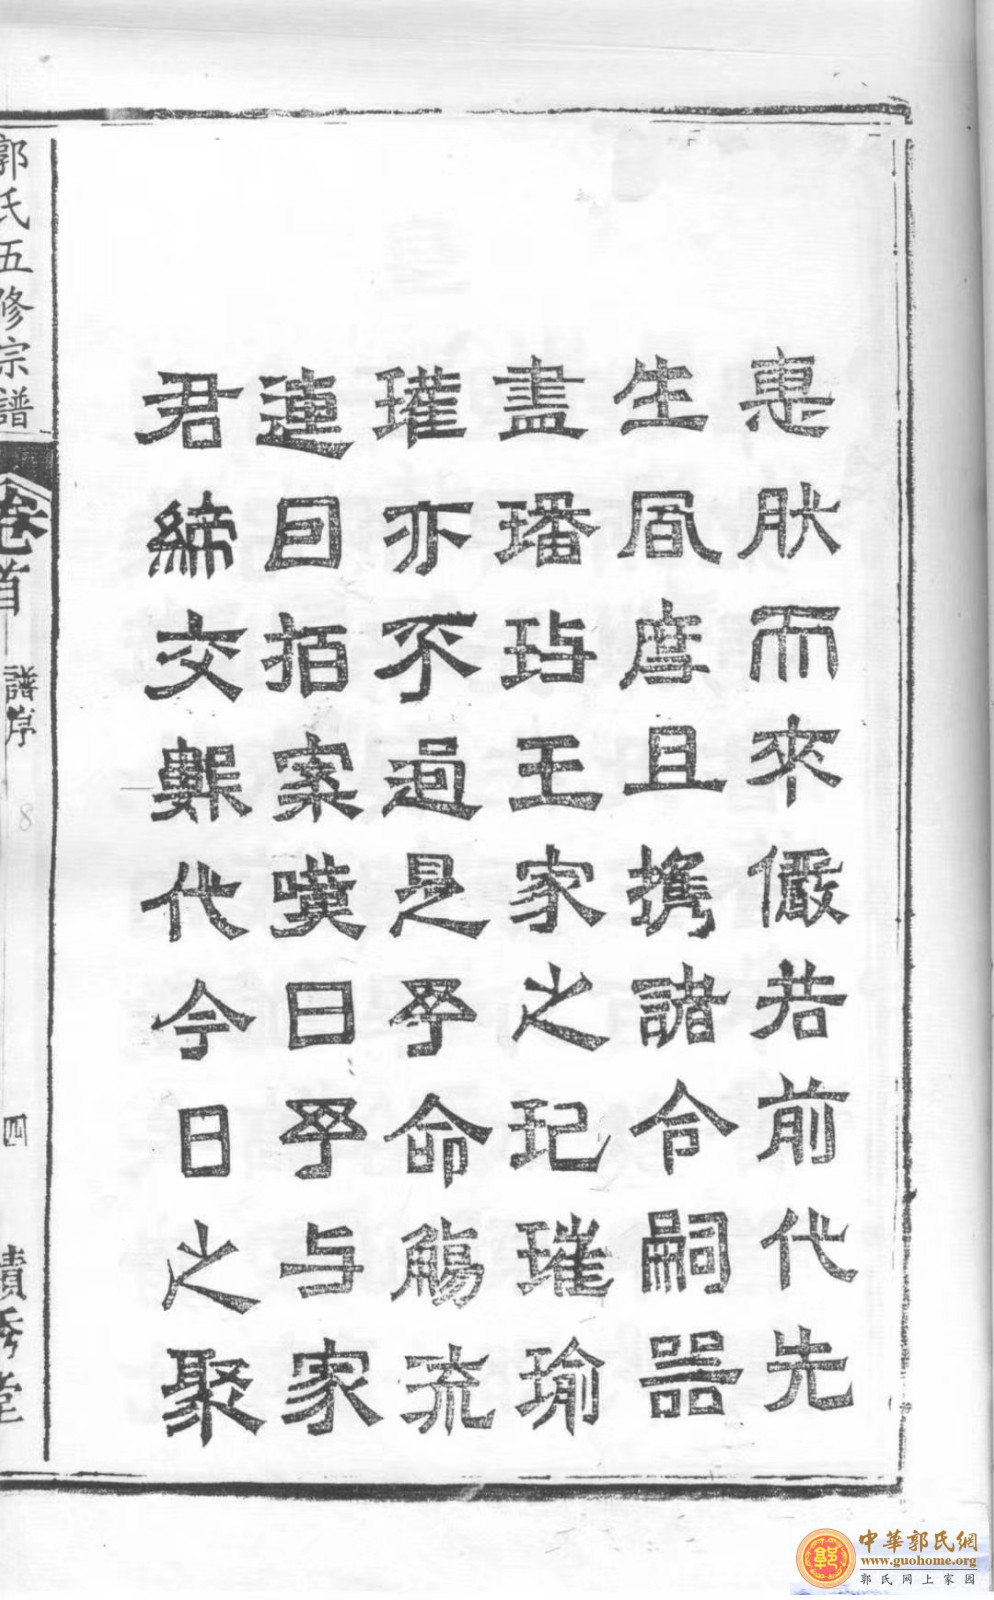 惠肰而來儼若前代先
生風度且攜諸令嗣器
盡璠玙王家之玘璀瑜
瓘亦不過是予命觴流
連囙拍案嘆曰予与家
君締交數代今日之聚
郭氏五修宗譜 卷首 譜序 8 四 積秀堂
中華郭氏網
www.guohome.org
郭氏网上家园